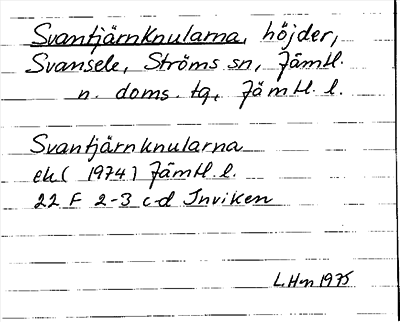 Svantjärnknularna, höjder,
Svansele, Ströms sn, Jämtl.
n. doms. tg, Jämtl. l.
Svantjärnknularna
ek( 1974) Jämtl. l.
22 F 2-3 c-d Inviken
L.Hm 1975